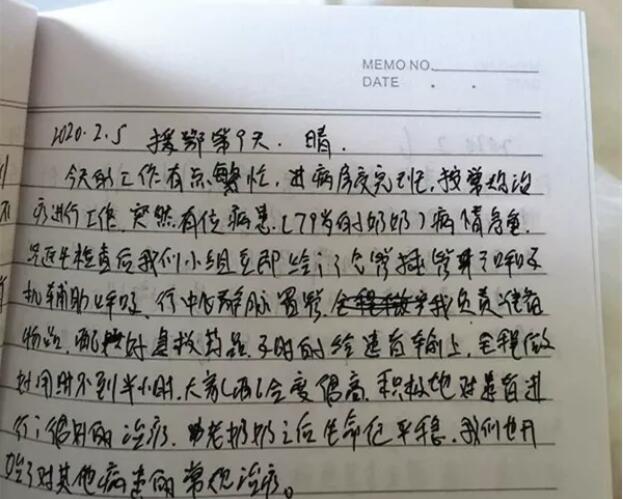 MEMO NO.
DATE . .
2020.2.5 援鄂第9天. 晴.
今天的工作有点繁忙, 进病房交完班, 按常规治
疗进行工作. 突然有位病患. (79岁的奶奶) 病情危重.
检查后我们小组立即给了气管插管并予呼吸
机辅助呼吸. 行中心静脉置管. 我负责准备
物品, 配 急救药品. 及时的给患者输上, 全程做
到用时不到半小时. 大家 偏高. 积极地对患者进
行了 的治疗. 老奶奶之后生命 平稳. 我们也开
始了对其他病患的常规治疗。